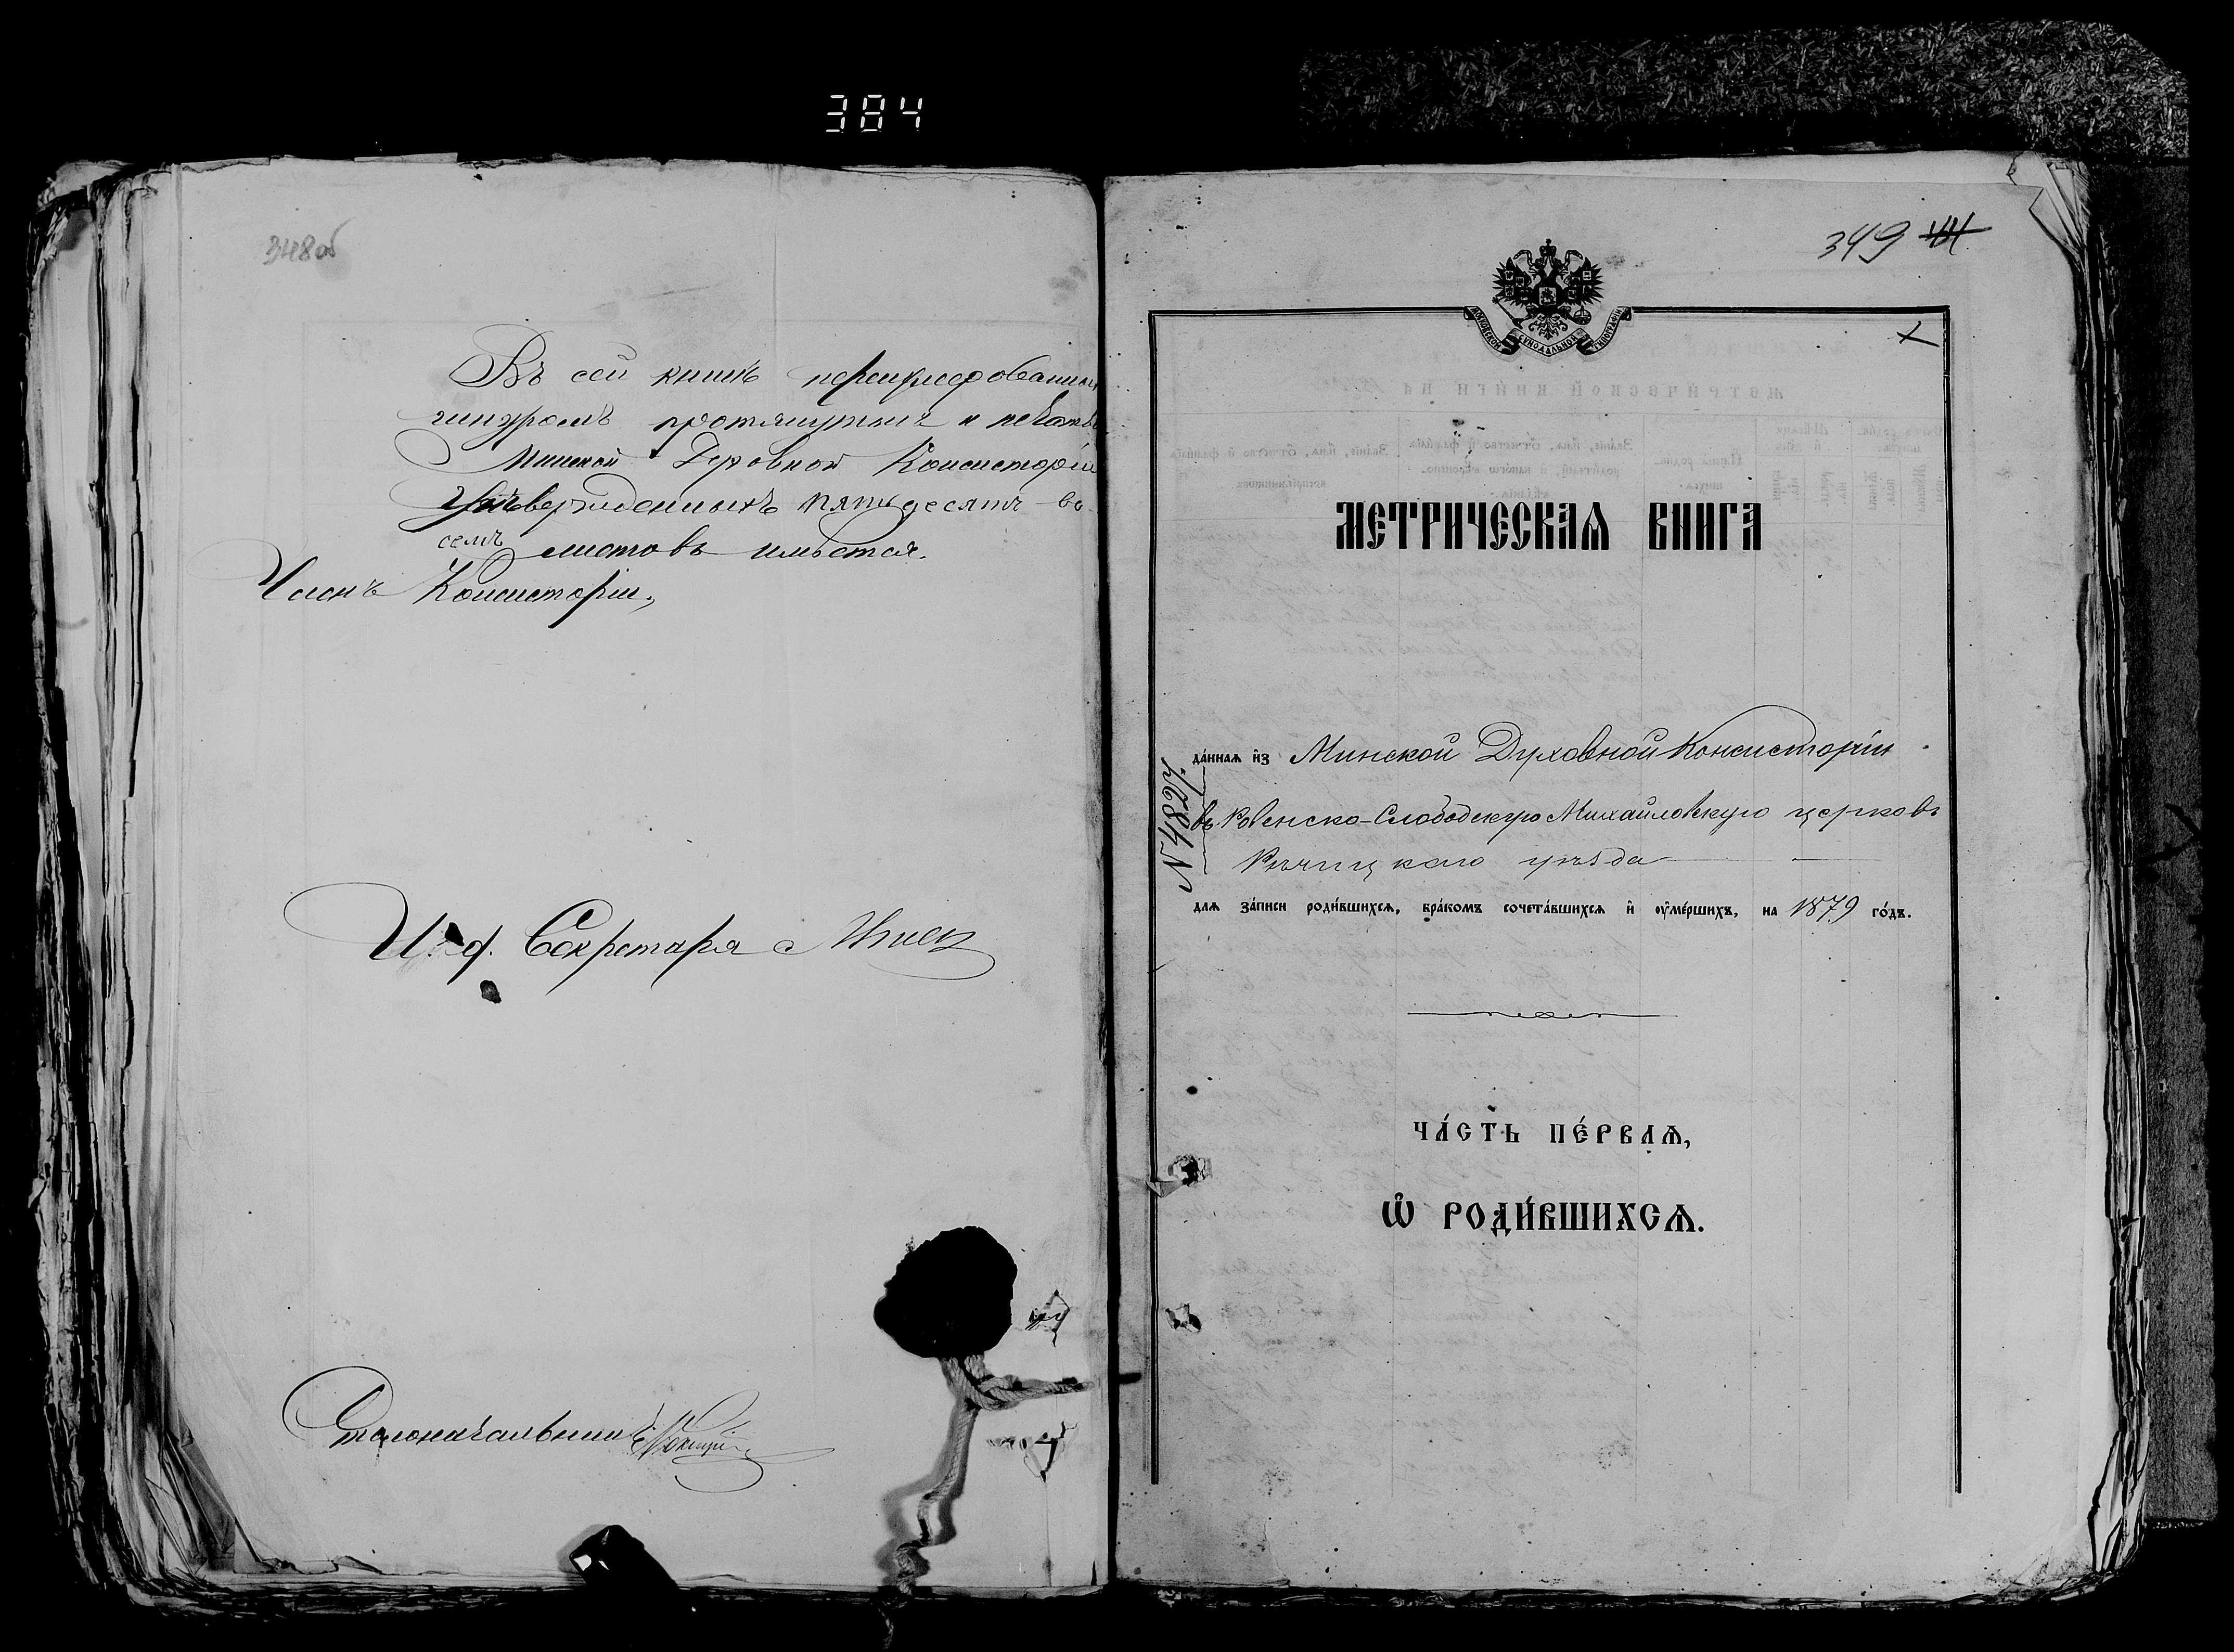 384
348об
Въ сей книгѣ перенумерованныхъ
шнуромъ протянутыхъ и печатью
Минской Духовной Консисторіи
утвержденныхъ пятьдесятъ во-
семь листовъ имѣется.
Членъ Консисторіи,
И. д. Секретаря
Столоначальникъ
349
МЕТРИЧЕСКАѦ КНИГА
да́ннаѧ и҆з Минской Духовной Консисторіи
въ Ровенско-Слободскую Михайловскую церковь
Рѣчицкаго уѣзда
для за́писи роди́вшихсѧ, бра́комъ сочета́вшихсѧ и҆ ᲂу҆ме́ршихъ, на 1879 го́дъ.
№ 4827.
ЧА́СТЬ ПЕ́РВАѦ,
Ѽ РОДИ́ВШИХСѦ.